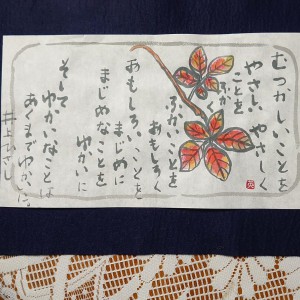 むつかしいことを
やさしく、やさしく
ことを
ふかく
ふかいことを
おもしろく
おもしろいことを
まじめに
まじめなことを
ゆかいに
そして
ゆかいなことは
あくまでゆかいに。
井上ひさし